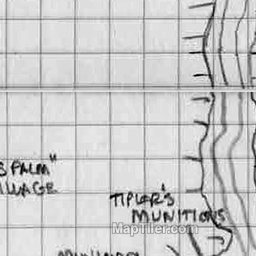 S PALM"
ILLAGE
TIPLER'S
MUNITIONS
MapTiler.com